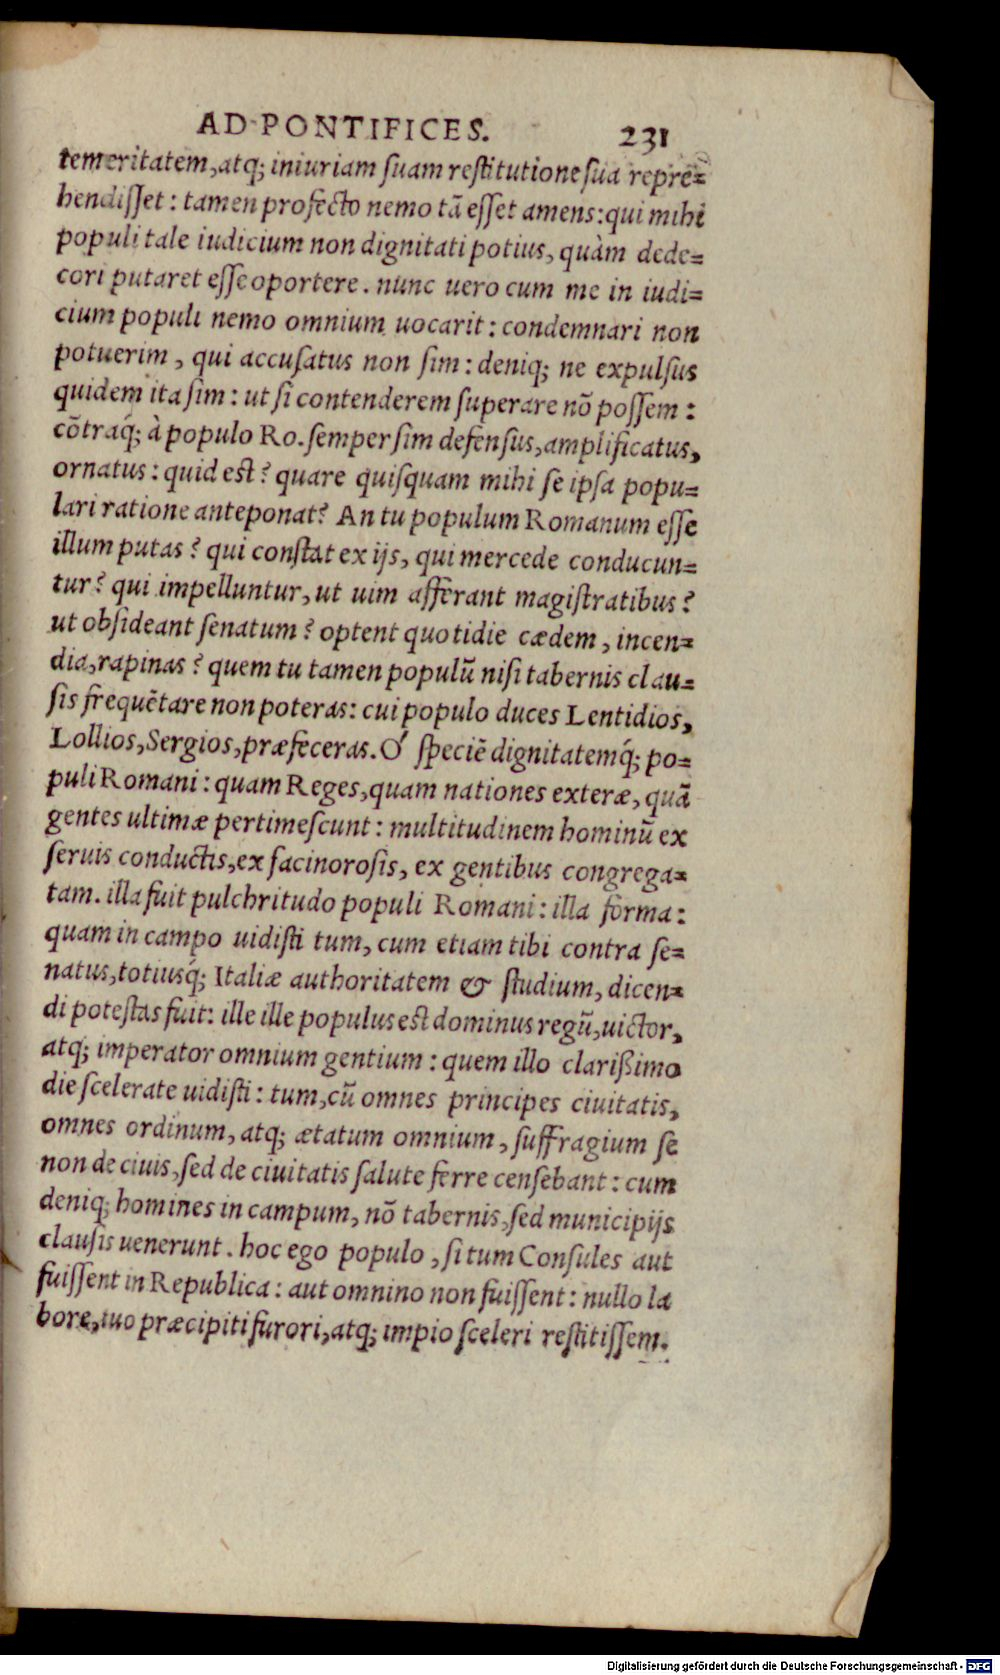 AD PONTIFICES. 231
temeritatem, atq; iniuriam ſuam reſtitutione ſua reprē=
hendiſſet: tamen profecto nemo tā eſſet amens: qui mihi
populi tale iudicium non dignitati potius, quàm dede=
cori putaret eſſe oportere. nunc uero cum me in iudi=
cium populi nemo omnium uocarit: condemnari non
potuerim, qui accuſatus non ſim: deniq; ne expulſus
quidem ita ſim: ut ſi contenderem ſuperare nō poſſem:
cōtraq́; à populo Ro. ſemper ſim defenſus, amplificatus,
ornatus: quid eſt? quare quiſquam mihi ſe ipſa popu=
lari ratione anteponat? An tu populum Romanum eſſe
illum putas? qui conſtat ex ijs, qui mercede conducun=
tur? qui impelluntur, ut uim afferant magiſtratibus?
ut obſideant ſenatum? optent quotidie cædem, incen=
dia, rapinas? quem tu tamen populū niſi tabernis clau=
ſis frequētare non poteras: cui populo duces Lentidios,
Lollios, Sergios, præfeceras. Ó ſpeciē dignitatemq́; po=
puli Romani: quam Reges, quam nationes exteræ, quā
gentes ultimæ pertimeſcunt: multitudinem hominū ex
ſeruis conductis, ex facinoroſis, ex gentibus congrega=
tam. illa fuit pulchritudo populi Romani: illa forma:
quam in campo uidiſti tum, cum etiam tibi contra ſe=
natus, totiusq́; Italiæ authoritatem & ſtudium, dicen=
di poteſtas fuit: ille ille populus eſt dominus regū, uictor,
atq; imperator omnium gentium: quem illo clarißimo
die ſcelerate uidiſti: tum, cū omnes principes ciuitatis,
omnes ordinum, atq; ætatum omnium, ſuffragium ſe
non de ciuis, ſed de ciuitatis ſalute ferre cenſebant: cum
deniq; homines in campum, nō tabernis, ſed municipijs
clauſis uenerunt. hoc ego populo, ſi tum Conſules aut
fuiſſent in Republica: aut omnino non fuiſſent: nullo la
bore, tuo præcipiti furori, atq; impio ſceleri reſtitiſſem.
Digitalisierung gefördert durch die Deutsche Forschungsgemeinschaft - DFG